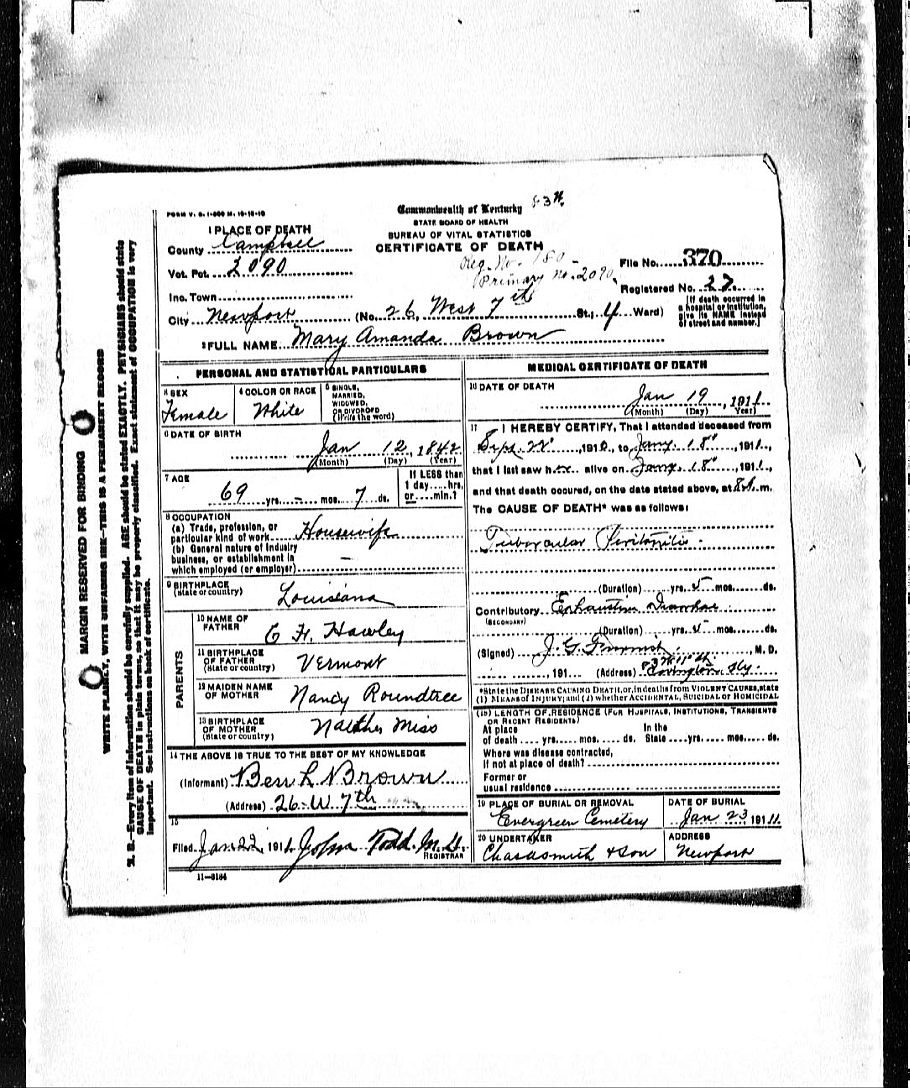 FORM V. S. 1-500 M. 10-18-10
Commonwealth of Kentucky
STATE BOARD OF HEALTH
BUREAU OF VITAL STATISTICS
CERTIFICATE OF DEATH
1 PLACE OF DEATH
County Campbell
Vot. Pct. 2090
Inc. Town
City Newport (No. 26, West 7th St.; 4 Ward)
Reg. No. 180
Primary No. 2090
File No. 370
Registered No. 22
[If death occurred in a hospital or institution, give its NAME instead of street and number.]
2 FULL NAME Mary Amanda Brown
PERSONAL AND STATISTICAL PARTICULARS
3 SEX Female
4 COLOR OR RACE White
5 SINGLE, MARRIED, WIDOWED, OR DIVORCED (Write the word)
6 DATE OF BIRTH
Jan 12, 1842
(Month) (Day) (Year)
7 AGE
69 yrs. – mos. 7 ds.
If LESS than 1 day....hrs. or....min.?
8 OCCUPATION
(a) Trade, profession, or particular kind of work Housewife
(b) General nature of industry business, or establishment in which employed (or employer) –
9 BIRTHPLACE (State or country) Louisiana
PARENTS
10 NAME OF FATHER E H. Hawley
11 BIRTHPLACE OF FATHER (State or country) Vermont
12 MAIDEN NAME OF MOTHER Nancy Roundtree
13 BIRTHPLACE OF MOTHER (State or country) Miss
14 THE ABOVE IS TRUE TO THE BEST OF MY KNOWLEDGE
(Informant) Ben L Brown
(Address) 26 W 7th
15
Filed Jan 22 1911 John Todd. M.D.
REGISTRAR
11—3184
MEDICAL CERTIFICATE OF DEATH
16 DATE OF DEATH
Jan 19, 1911.
(Month) (Day) Year)
17 I HEREBY CERTIFY, That I attended deceased from
Sept. 22", 1910, to Jany. 18", 1911,
that I last saw her alive on Jany. 18", 1911,
and that death occured, on the date stated above, at m.
The CAUSE OF DEATH* was as follows:
Tubercular Peritonitis.
(Duration) yrs. 5 mos. ds.
Contributory Exhaustion Diarrhea
(SECONDARY)
(Duration) yrs. 5 mos. ds.
(Signed) J. G. , M. D.
, 191 (Address) Covington Ky.
*State the DISEASE CAUSING DEATH, or, in deaths from VIOLENT CAUSES, state (1) MEANS OF INJURY; and (2) whether ACCIDENTAL, SUICIDAL OR HOMICIDAL
(18) LENGTH OF RESIDENCE (FOR HOSPITALS, INSTITUTIONS, TRANSIENTS OR RECENT RESIDENTS)
At place of death yrs. mos. ds. In the State yrs. mos. ds.
Where was disease contracted,
if not at place of death?
Former or
usual residence
19 PLACE OF BURIAL OR REMOVAL
Evergreen Cemetery
DATE OF BURIAL
Jan 23 1911
20 UNDERTAKER
Chas Smith & Son
ADDRESS
Newport
MARGIN RESERVED FOR BINDING
WRITE PLAINLY, WITH UNFADING INK—THIS IS A PERMANENT RECORD
N. B.—Every item of information should be carefully supplied. AGE should be stated EXACTLY. PHYSICIANS should state
CAUSE OF DEATH in plain terms, so that it may be properly classified. Exact statement of OCCUPATION is very
important. See instructions on back of certificate.